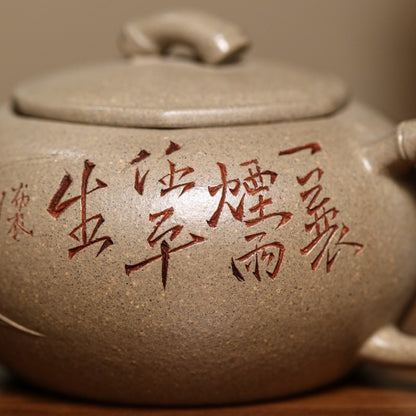 一蓑
煙雨
任平
生